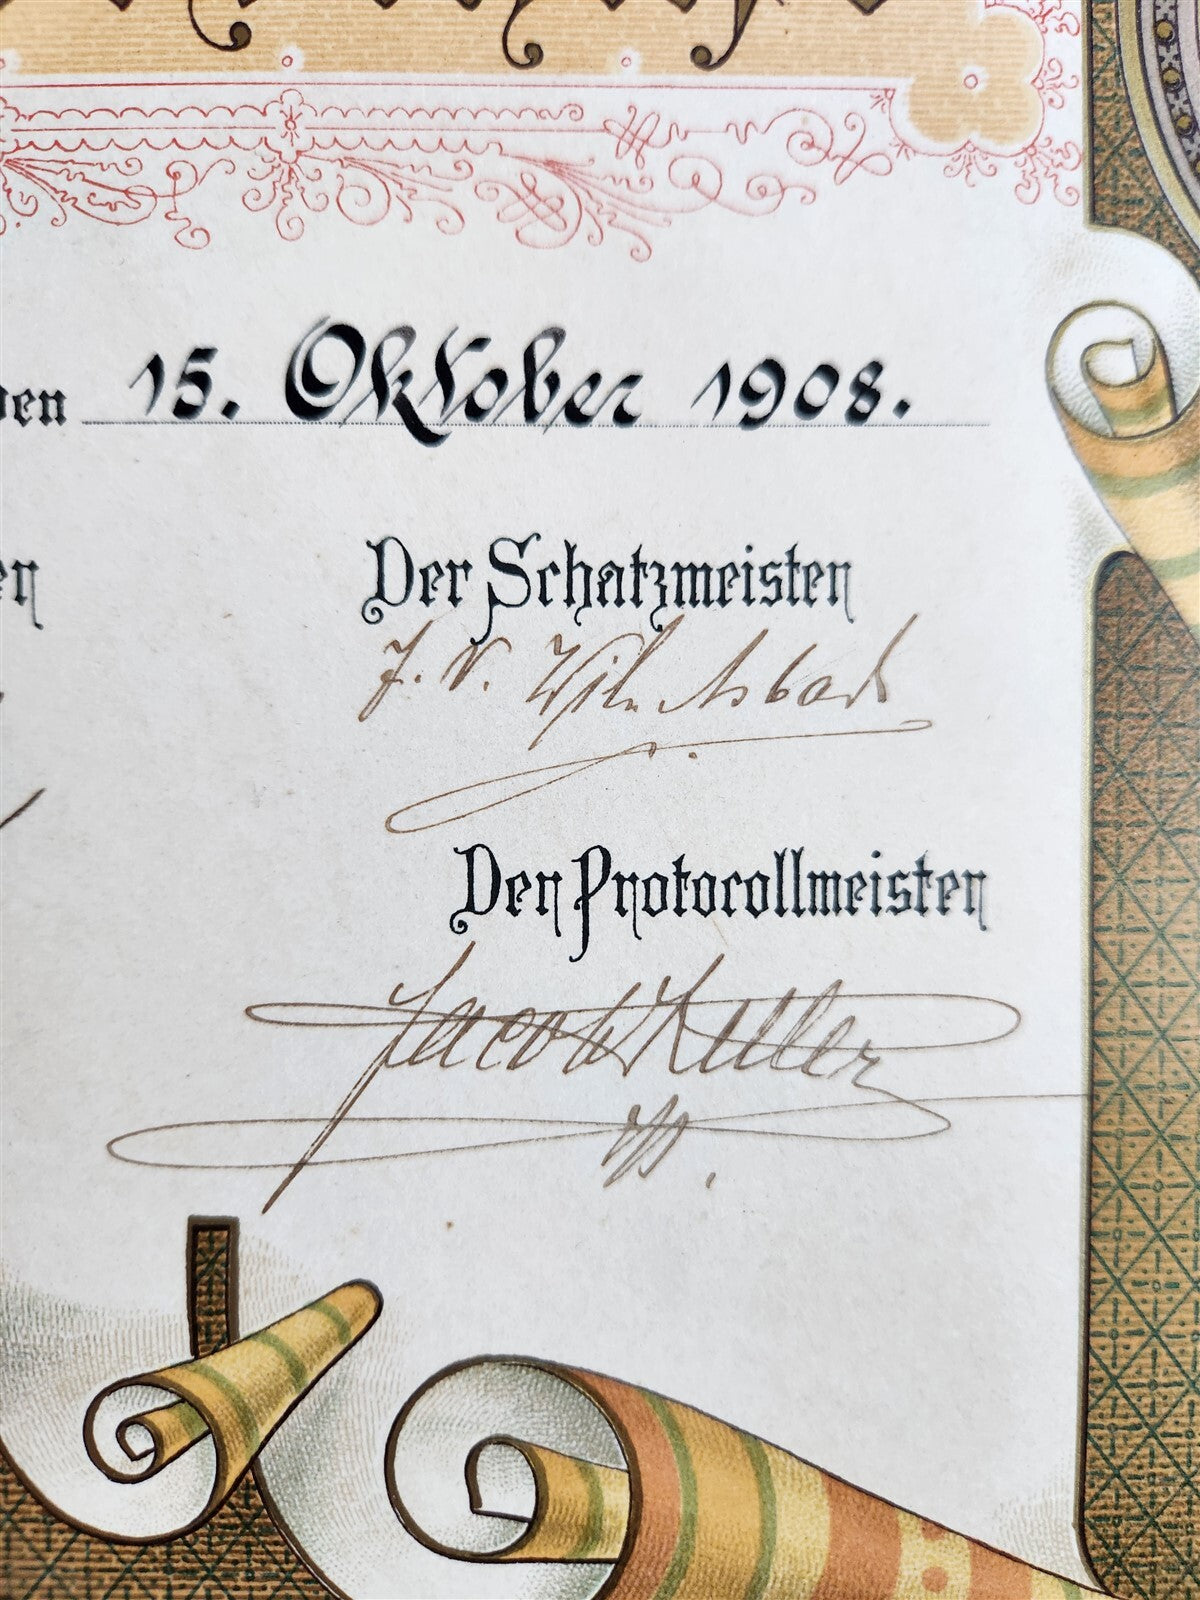 den 15. Oktober 1908.
Der Schatzmeister
J. V. Wilh. Asbach
Der Protocollmeister
Jacob Keller